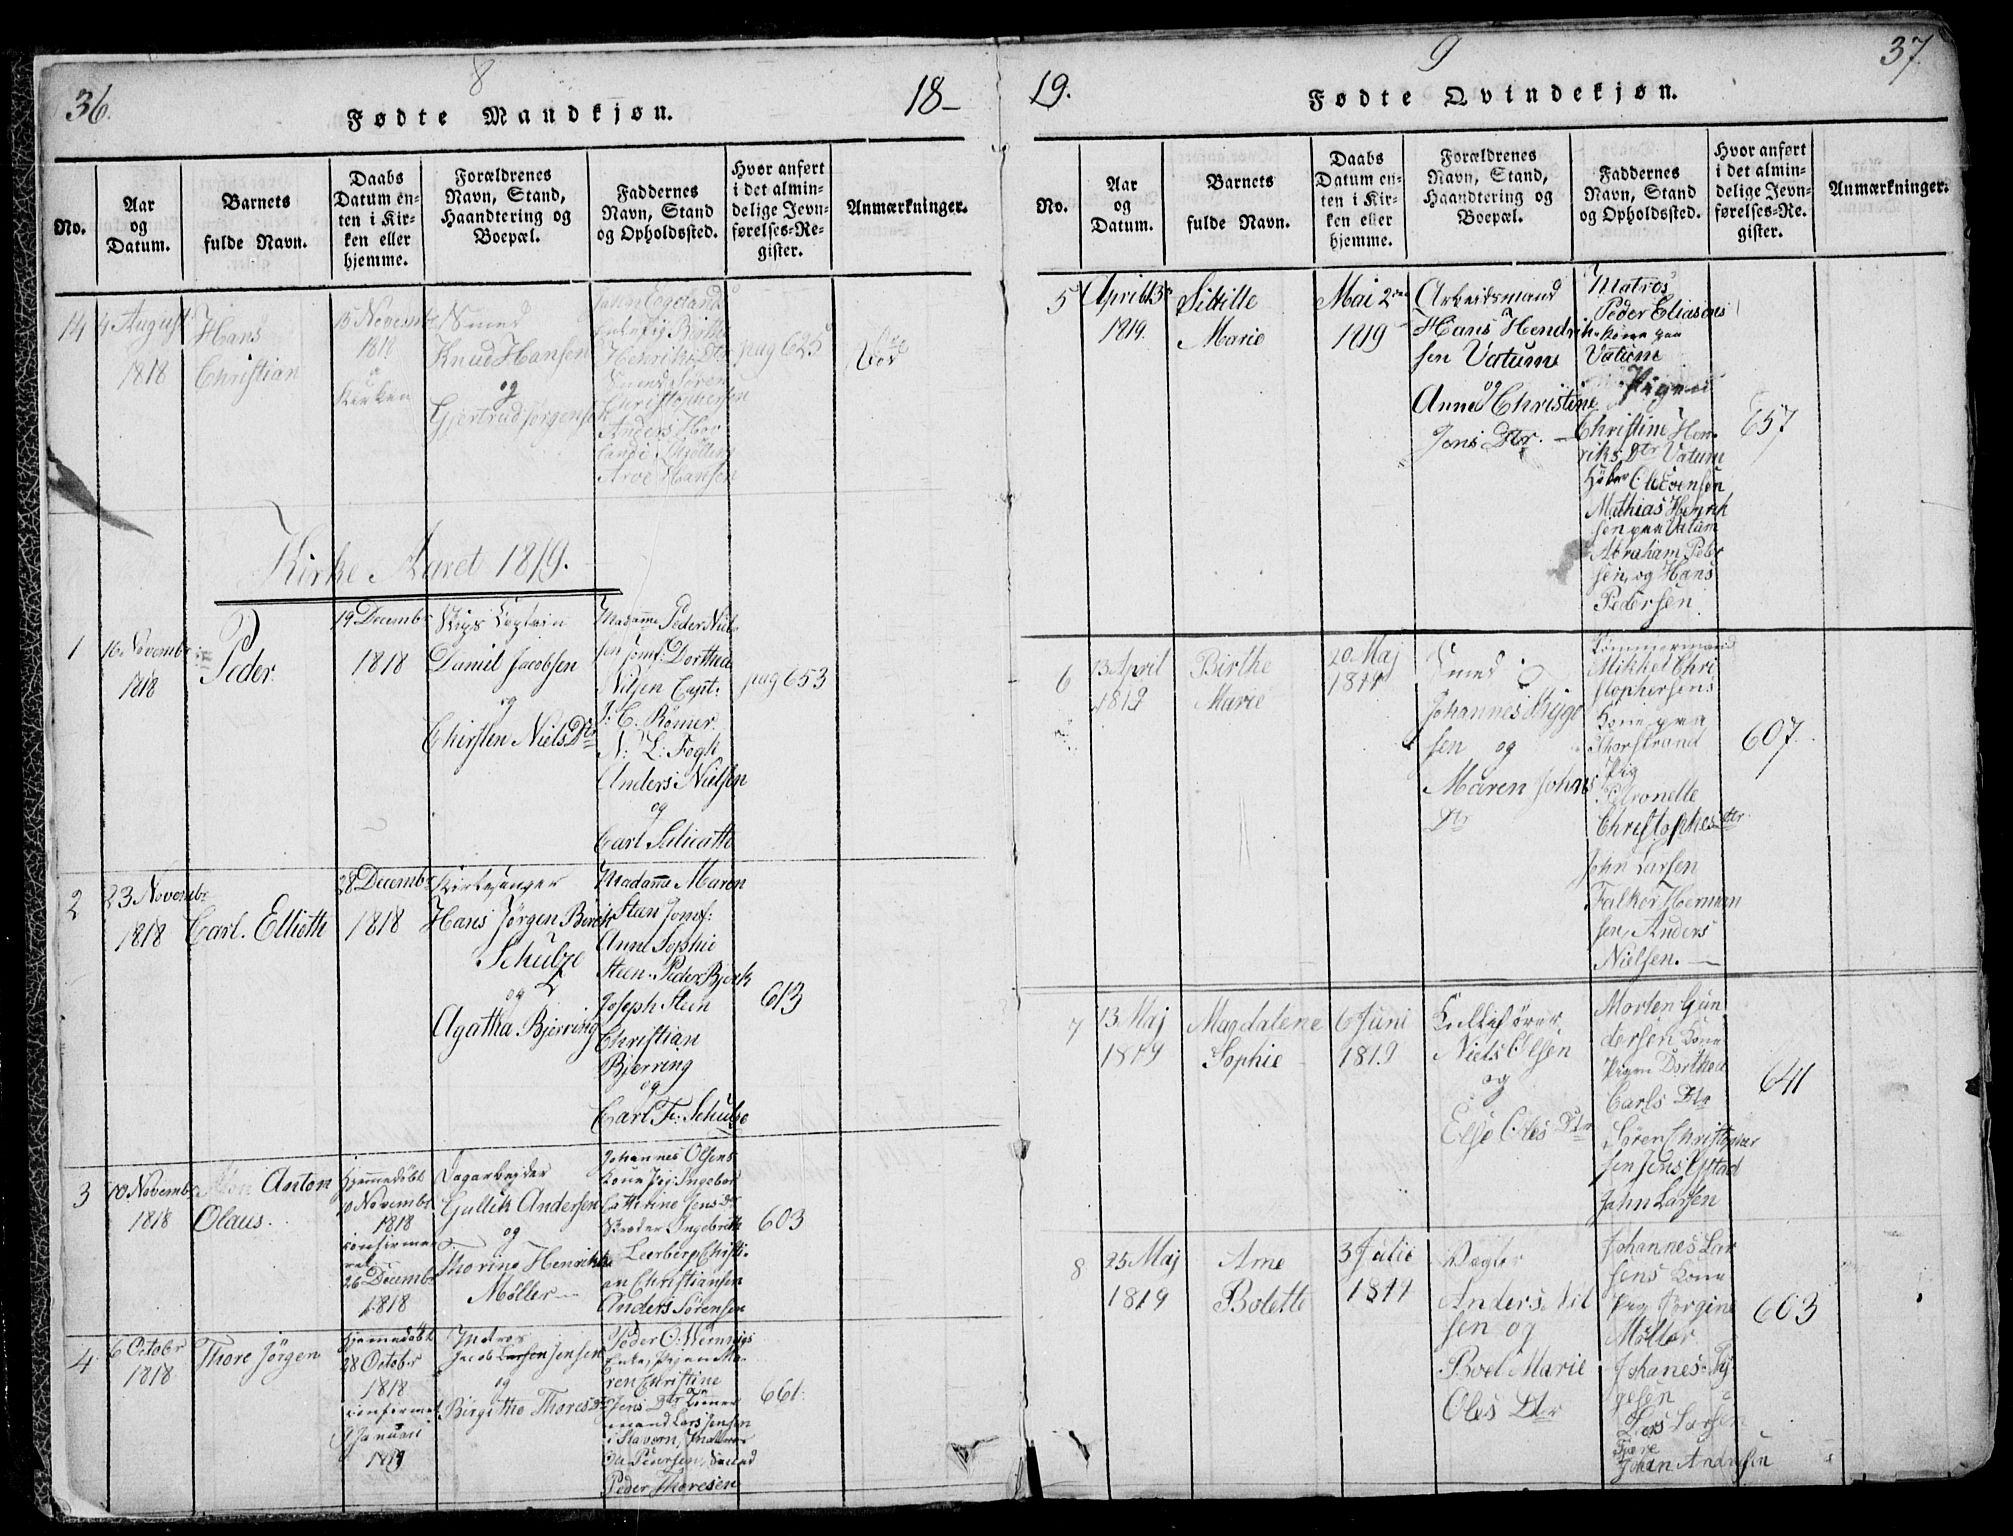 36.
8
18-
Fødte Mandkjøn.
No.
Aar
og
Datum.
Barnets
fulde Navn.
Daabs
Datum en-
ten i Kir-
ken eller
hjemme.
Forældrenes
Navn, Stand,
Haandtering og
Boepæl.
Faddernes
Navn, Stand
og Opholdssted.
Hvor anført
i det almin-
delige Jevn-
førelses-Re-
gister.
Anmærkninger.
14
4 August
1818
Hans
Christian
15 Novembr
1818
i
Kirken
Smed
Knud Hansen
og
Gjertrud Jørgens
Birthe
Henriks Dtr
Smed Søren
Christophersen
Anders
Arve Hansen
pag 625
Kirke Aaret 1819.
1
16 Novembr
1818
Peder
19 Decembr
1818
Skips Captain
Daniel Jacobsen
og
Chirsten Niels Dtr
Madame Peder Niel-
sen Jomf: Dorthea
Nilsen Capt:
J: C. Rømer
N: L: Fogh
Anders Nielsen
og
Carl
pag 653
2
23 Novembr
1818
Carl. Elliett
28 Decembr
1818
Kirkesanger
Hans Jørgen
Schulze
og
Agatha Bjerring
Madame Maren
Steen Jomf:
Anne Sophie
Steen. Peder Bjerk
Joseph Steen
Christian
Bjerring
og
Carl Fr: Schulze
613
3
10 Novembr
1818
Anton
Olaus.
hjemmedøbt
10 Novembr
1818
confirme
ret
26 Decembr
1818
Dagarbejder
Gullik Andersen
og
Thorine Henrikke
Møller
Johannes Olsens
Kone Pig: Ingebor
Cathrine Jens Dtr
Ingebrith
Leerberg, Christi-
an Christiansen
Anders Sørensen
603
4
6 Octobr
1818
Thore Jørgen
hjemmedøbt
28 Octobr
1818
confirmet
9 Januari
1819
Matros
Jacob Jensen
og
Birgithe Thores Dtr
Peder O.
Enke, Pigen Ma-
ren Christine
Jens Dtr
mand Lars Jensen
i Stavern, Matros
Ole Peersen, Smed
Peder Thoresen
661.
19.
9
37.
Fødte Qvindekjøn.
No.
Aar
og
Datum.
Barnets
fulde Navn.
Daabs
Datum en-
ten i Kir-
ken eller
hjemme.
Forældrenes
Navn, Stand,
Haandtering og
Boepæl.
Faddernes
Navn, Stand
og Opholdssted.
Hvor anført
i det almin-
delige Jevn-
førelses-Re-
gister.
Anmærkninger.
5
April 13
1819.
Sibille
Marie
Mai 2den
1819
Arbeidsmand
Hans Hendrik-
sen Vatum
og
Anne Christine
Jens Dtr.
Matros
Peder Eliasens
Kone paa
Vatum
Pigen
Christine Hen-
riks Dtr Vatum
Ole Svensen
Mathias Henrik
sen paa Vatum
Abraham Peder
sen, og Hans
Pedersen
657
6
13 April
1819
Birthe
Marie
20 Maj
1819
Smed
Johannes
sen og
Maren Johns
Dtr
Tømmermand
Mikkel Chri
stophersens
Kone paa
Thorstrand
Pig
Petronelle
Christophes Dtr
John Larsen
Falkor Herman
sen, Anders
Nielsen.
607.
7
13 Maj
1819
Magdalene
Sophie
6 Juni
1819
Niels Olsen
og
Else Oles Dtr
Morten Gun
dersen Kone
Pigen Dorthea
Carls Dtr
Søren Christopher
sen Jens
John Larsen
641
8
25 Maj
1819
Arne
Bolette
3 Julie
1819
Vægter
Anders Nil
sen og
Boel Marie
Oles Dtr
Johannes Lar
sens Kone
Pig Jørgine
Møller
Johanes
Lars Larsen
Johan Andersen
603